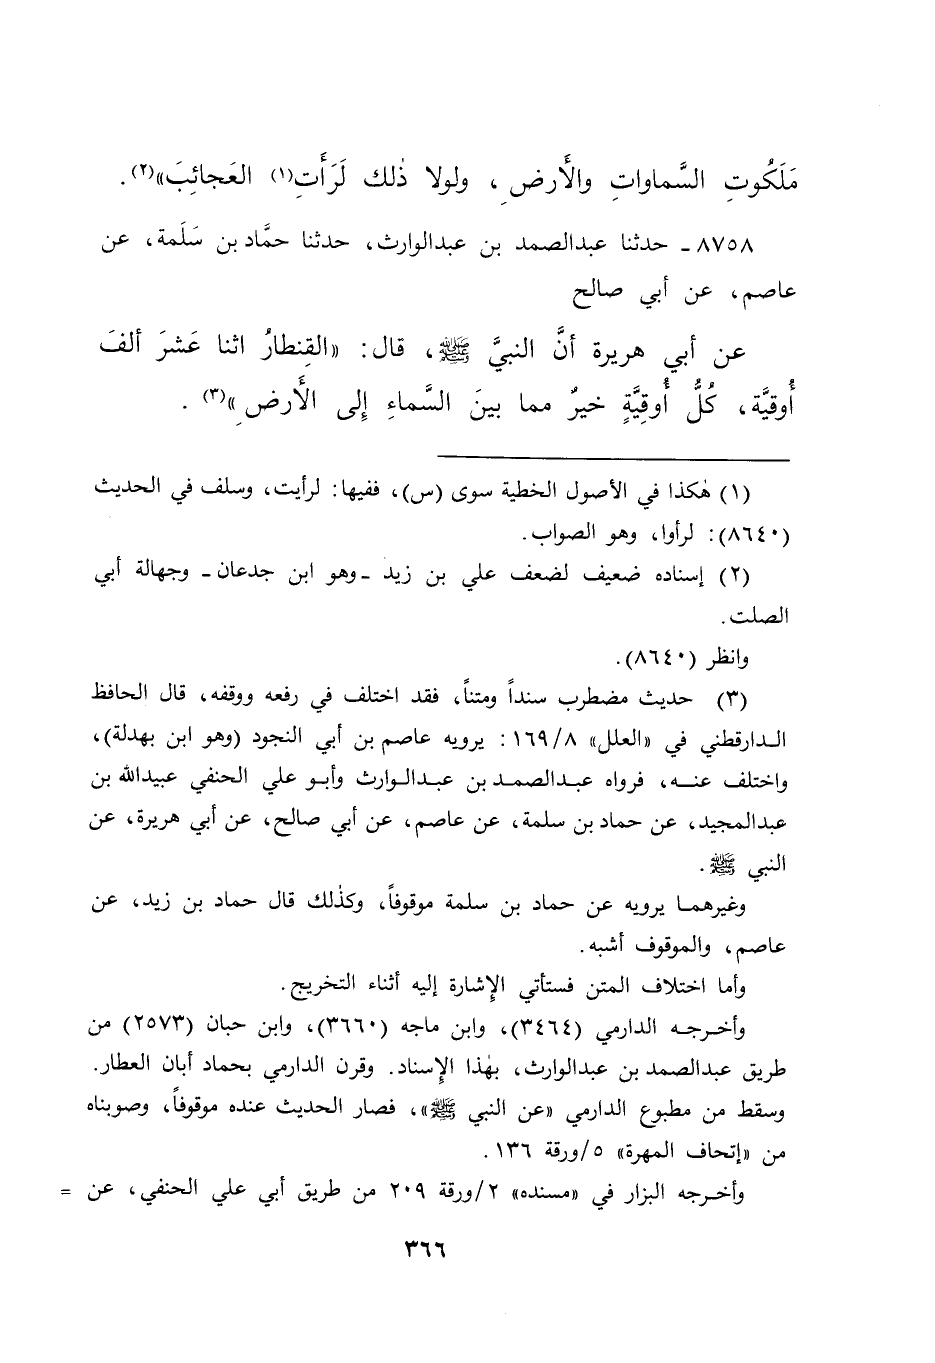 مَلَكُوتِ السَّماواتِ والأَرضِ، ولولا ذٰلك لَرَأَتِ(١) العَجائِبَ»(٢).
٨٧٥٨ - حدثنا عبدالصمد بن عبدالوارث، حدثنا حمَّاد بن سَلَمة، عن
عاصم، عن أبي صالح
عن أبي هريرة أنَّ النبيَّ ﷺ، قال: «القِنطارُ اثنا عَشَرَ ألفَ
أُوقيَّة، كُلُّ أُوقِيَّةٍ خيرٌ مما بينَ السَّماءِ إلى الأَرضِ»(٣).
(١) هٰكذا في الأصول الخطية سوى (س)، ففيها: لرأيت، وسلف في الحديث
(٨٦٤٠): لرأوا، وهو الصواب.
(٢) إسناده ضعيف لضعف علي بن زيد -وهو ابن جدعان- وجهالة أبي
الصلت.
وانظر (٨٦٤٠).
(٣) حديث مضطرب سنداً ومتناً، فقد اختلف في رفعه ووقفه، قال الحافظ
الدارقطني في «العلل» ١٦٩/٨: يرويه عاصم بن أبي النجود (وهو ابن بهدلة)،
واختلف عنه، فرواه عبدالصمد بن عبدالوارث وأبو علي الحنفي عبيدالله بن
عبدالمجيد، عن حماد بن سلمة، عن عاصم، عن أبي صالح، عن أبي هريرة، عن
النبي ﷺ.
وغيرهما يرويه عن حماد بن سلمة موقوفاً، وكذٰلك قال حماد بن زيد، عن
عاصم، والموقوف أشبه.
وأما اختلاف المتن فستأتي الإشارة إليه أثناء التخريج.
وأخرجه الدارمي (٣٤٦٤)، وابن ماجه (٣٦٦٠)، وابن حبان (٢٥٧٣) من
طريق عبدالصمد بن عبدالوارث، بهٰذا الإسناد. وقرن الدارمي بحماد أبان العطار.
وسقط من مطبوع الدارمي «عن النبي ﷺ»، فصار الحديث عنده موقوفاً، وصوبناه
من «إتحاف المهرة» ٥/ورقة ١٣٦.
وأخرجه البزار في «مسنده» ٢/ورقة ٢٠٩ من طريق أبي علي الحنفي، عن =
٣٦٦